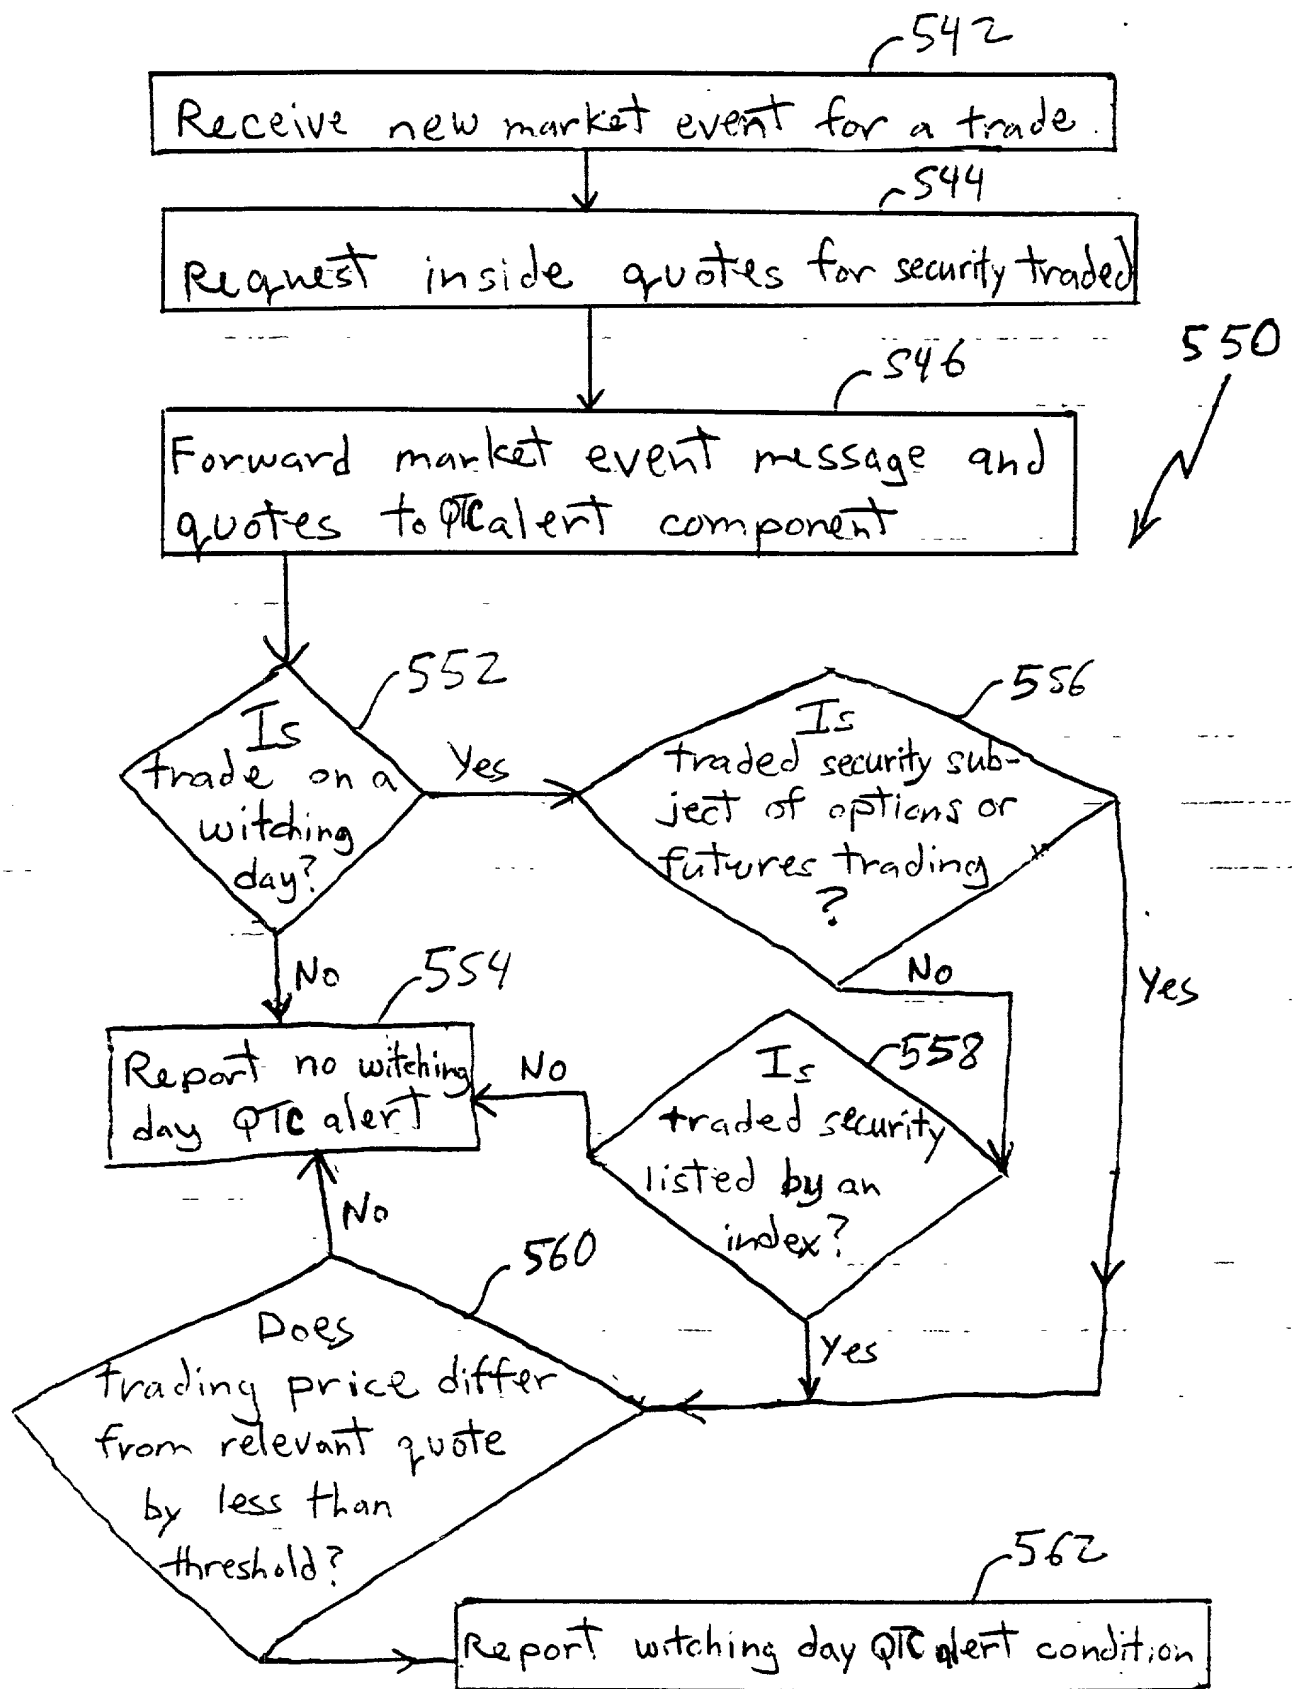 542
Receive new market event for a trade.
544
Request inside quotes for security traded
550
546
Forward market event message and
quotes to QTC alert component
552
Is
trade on a
witching
day?
Yes
556
Is
traded security sub-
ject of options or
futures trading
?
No
Yes
No
554
Report no witching
day QTC alert
No
558
Is
traded security
listed by an
index?
Yes
No
560
Does
trading price differ
from relevant quote
by less than
threshold?
562
Report witching day QTC alert condition